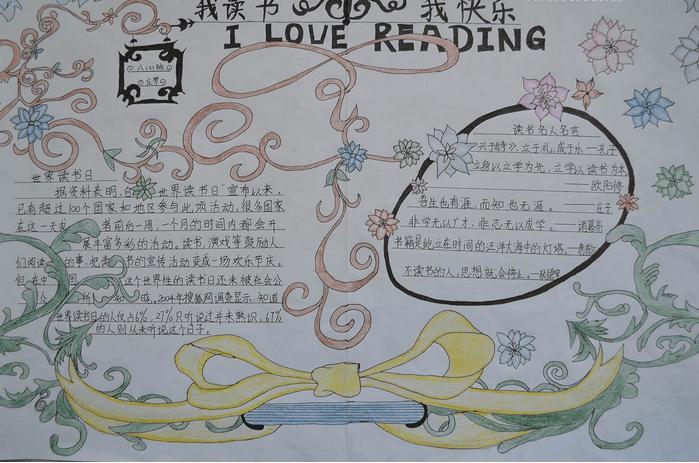 我读书 我快乐
I LOVE READING
八(3)班
世界读书日
据资料表明,自"世界读书日"宣布以来,
已有超过100个国家和地区参与此项活动,很多国家
在这一天或者前后一周,一个月的时间内都会开
展丰富多彩的活动。读书、演戏等鼓励人
们阅读的事,把读书的宣传活动变成一场欢乐节庆。
但在中国,这个世界性的读书日还未被社会公
所 2004年搜狐网调查显示,知道
世界读书日的人仅占6%,27%只听说过并未熟识,67%
的人则从未听说这个日子。
读书名人名言
兴于《诗》,立于礼,成于乐—孔子
立身以立学为先,立学以读书为本
——欧阳修
吾生也有涯,而知也无涯。
——庄子
非学无以广才,非志无以成学。—诸葛亮
书籍是屹立在时间的汪洋大海中的灯塔。
不读书的人,思想就会停止。